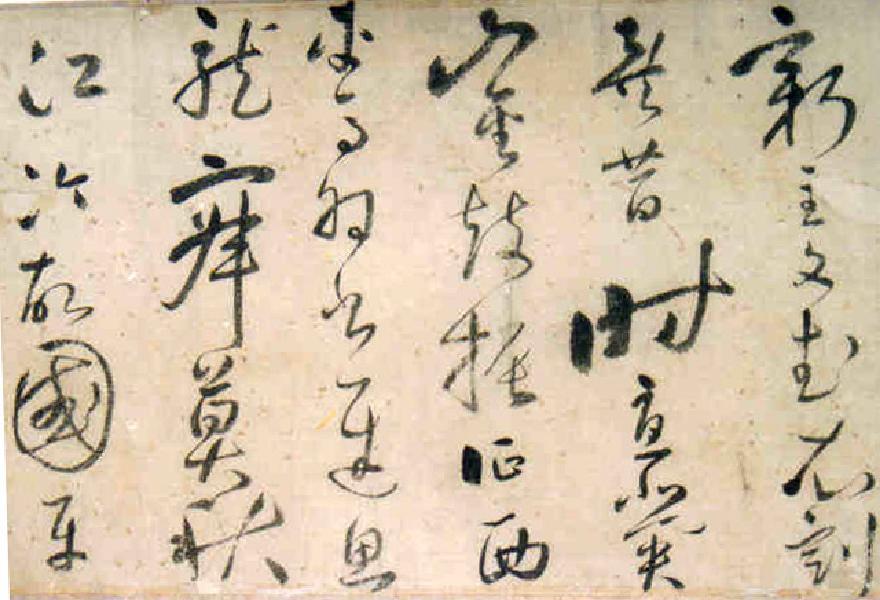 新主文武衣冠
異昔時直北關
山金鼓振征西
車馬羽書遲魚
龍寂寞秋
江冷故國平